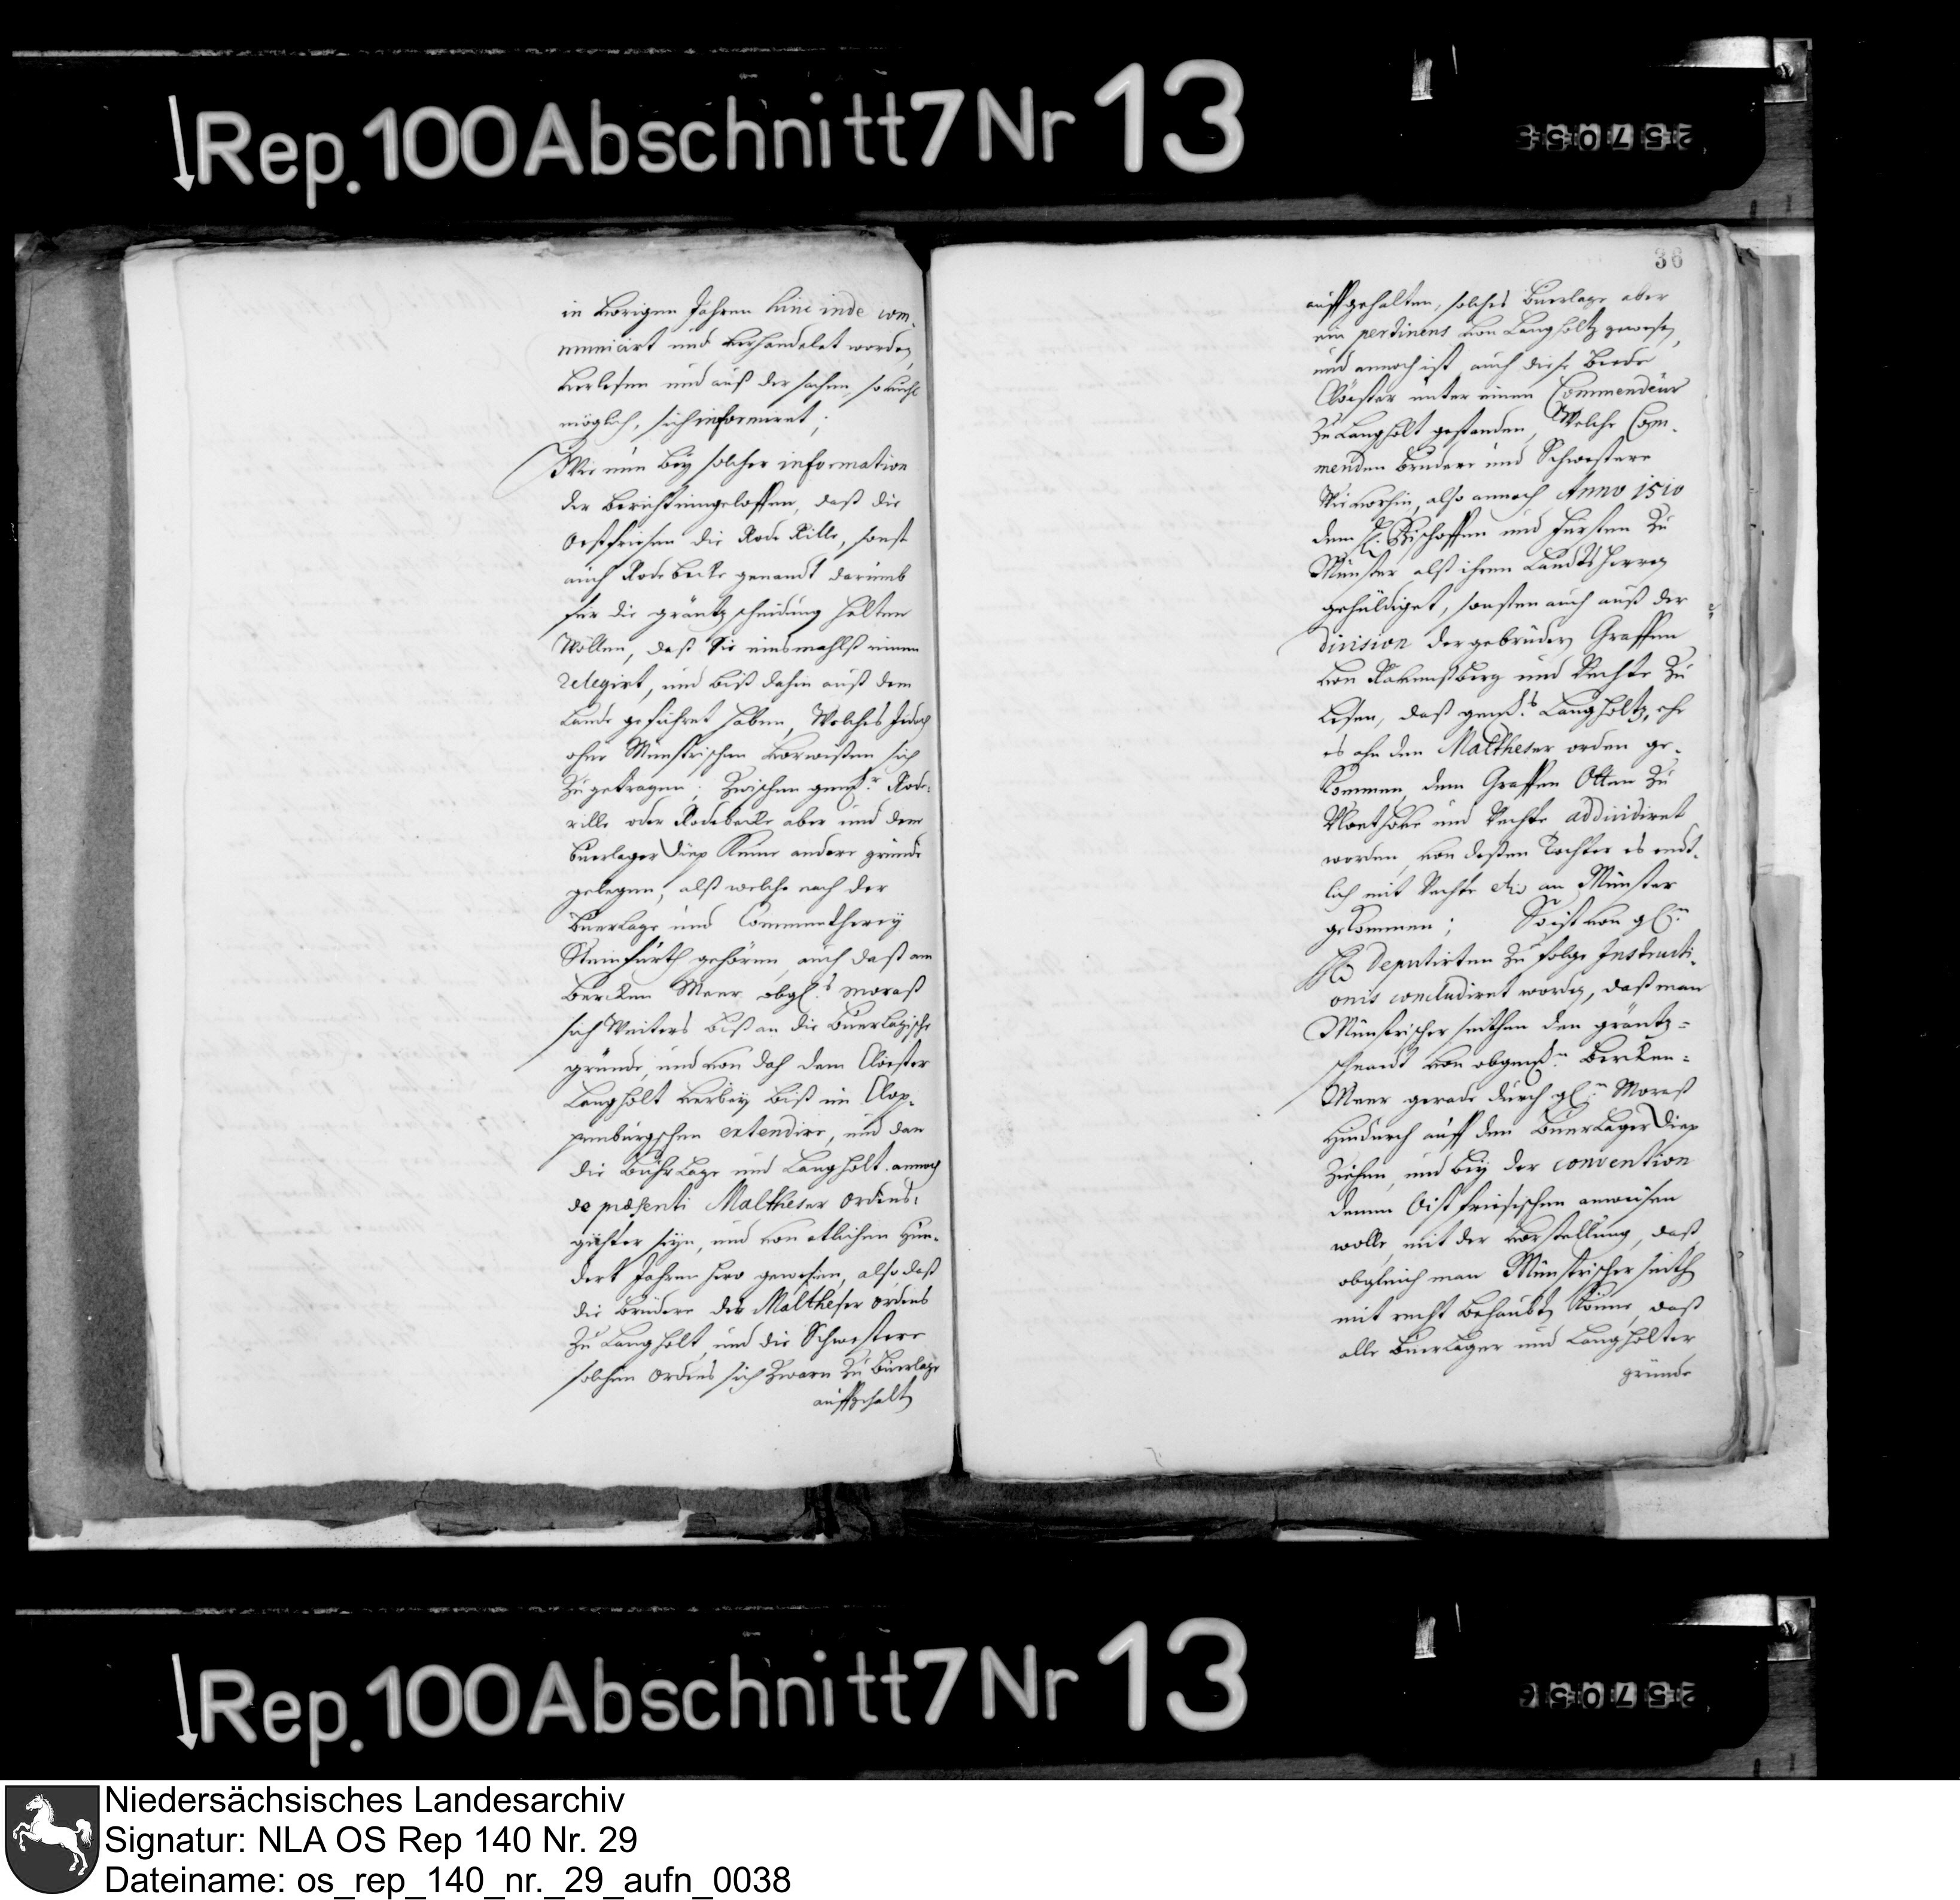 Rep. 100 Abschnitt 7 Nr 13
in vorigen Jahren hinc inde com-
municirt und verhandelet worden,
verlesen und auß der sachen, so viehl
möglich, sich informiret;
Wie nun bey solcher information
der bericht eingeloffen, daß die
Ostfriesen die Rode Rille, sonst
auch Rodebecke genandt darumb
für die gräntzscheidung halten
Wollen, daß Sie einsmahlß einen
relegirt, und biß dahin auß dem
Lande geführet haben, Welches Jedoch
ohne Münstrischen vorwißen sich
Zugetragen; Zwischen gemr. Rode-
rille oder Rodebecke aber und dem
Buerlager Diep Keine andere gründe
gelegen, alß welche nach der
Buerlage und Commentherey
Steinfurth gehören, auch daß am
Bercken Meer obgl.s moraß
sich Weiters biß an die Buerlagische
gründe, und von dah dem Closter
Langholt verbey biß im Clop-
penburgschen extendire, und dan
die Buhrlage und Langholt annoch
de præsenti Maltheser Ordens-
güther seyn, und von etlichen Hun-
dert Jahren hero gewesen, also daß
die Brüdere des Maltheser Ordens
Zu Langholt, und die Schwestere
solchen Ordens sich Zwarn Zu Buerlage
auffgehalt
36
auffgehalten, solches Buerlage aber
ein pertinens von Langholtz gewesen,
und annoch ist, auch diese Beede
Clöester unter einen Commendeur
Zu Langholt gestanden, Welche Com-
menden Brudere und Schwestere
Wie vorhin, also annoch Anno 1510
dem H. Bischoffen und Fürsten Zu
Münster alß ihren LandtsHerren
gehuldiget, sonsten auch auß der
division der gebrüder Graffen
von Ravenßberg und Vechte Zu
Lesen, daß gem.s Langholtz, ehe
es ahn den Maltheser orden ge-
Kommen, dem Graffen Otten Zu
Vloethove und Vechte addividiret
worden, von deßen Tochter es endt-
lich mit Vechte etc an Münster
gekommen; So ist von gl.n
HH Deputirten Zu folge Instructi-
onis concludiret worden, daß man
Münstrischer seithen den gräntz-
schnadt von obgem.n Bercken-
Meer gerade durch gl.n Moraß
hindurch auff den Buerlager Diep
Ziehen, und bey der convention
denen Ostfriesischen anweisen
wolle, mit der vorstellung, daß
obgleich man Münstrischer seith
mit recht behaubten Könne, daß
alle Buerlager und Langholter
gründe
Rep. 100 Abschnitt 7 Nr 13
Niedersächsisches Landesarchiv
Signatur: NLA OS Rep 140 Nr. 29
Dateiname: os_rep_140_nr._29_aufn_0038